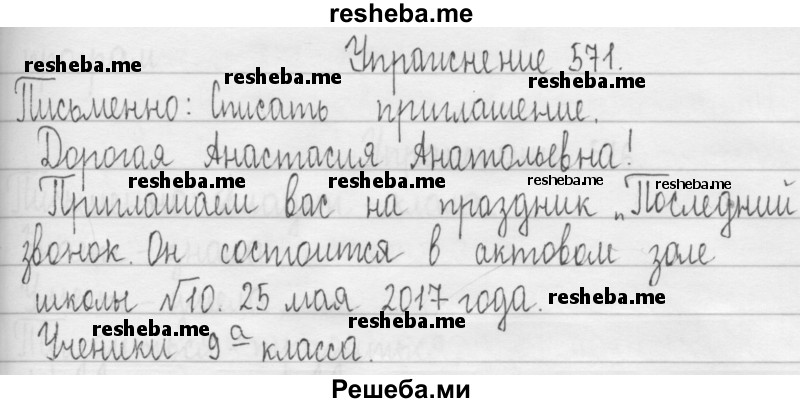 resheba.me
Упражнение 571.
resheba.me resheba.me resheba.me
Письменно: Списать приглашение.
Дорогая Анастасия Анатольевна!
resheba.me resheba.me resheba.me resheba.me
Приглашаем вас на праздник „Последний
звонок. Он состоится в актовом зале
школы №10. 25 мая 2017 года. resheba.me
resheba.me resheba.me
Ученики 9а класса.
Решеба.ми